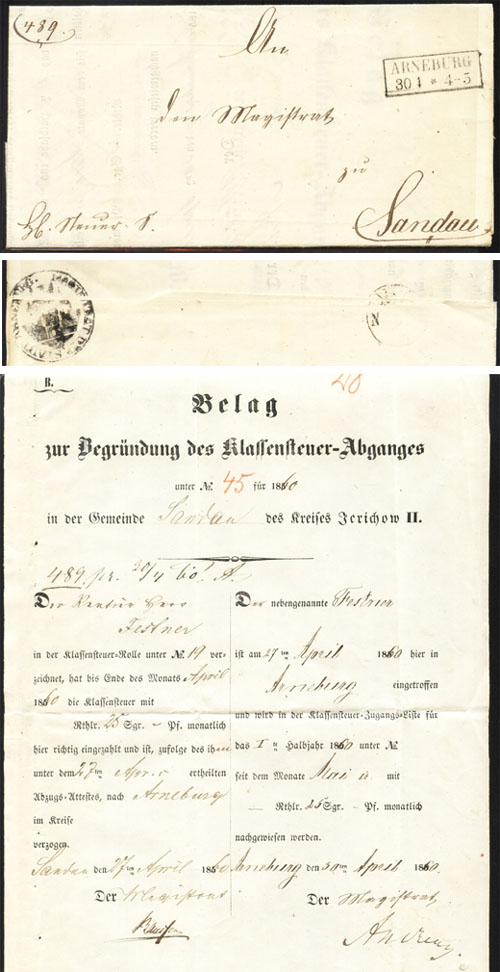 489.
An
den Magistrat
zu
Sandau
ARNEBURG
30 4 * 4-5
Steuer S.
MAGISTRAT
N
B.
40
Belag
zur Begründung des Klassensteuer-Abganges
unter № 45 für 1860
in der Gemeinde Sandau des Kreises Jerichow II.
489. pr. 30/4 60. A.
Der Herr
Festner
in der Klassensteuer-Rolle unter № 19 ver-
zeichnet, hat bis Ende des Monats April
1860 die Klassensteuer mit
Rthlr. 25 Sgr. – Pf. monatlich
hier richtig eingezahlt und ist, zufolge des ihm
unter dem 27ten April ertheilten
Abzugs-Attestes, nach Arneburg
im Kreise
verzogen.
Sandau den 27ten April 1860
Der Magistrat
Der nebengenannte Festner
ist am 27ten April 1860 hier in
Arneburg eingetroffen
und wird in der Klassensteuer-Zugangs-Liste für
das I te Halbjahr 1860 unter №
seit dem Monate Mai mit
— Rthlr. 25 Sgr. – Pf. monatlich
nachgewiesen werden.
Arneburg den 30ten April 1860.
Der Magistrat